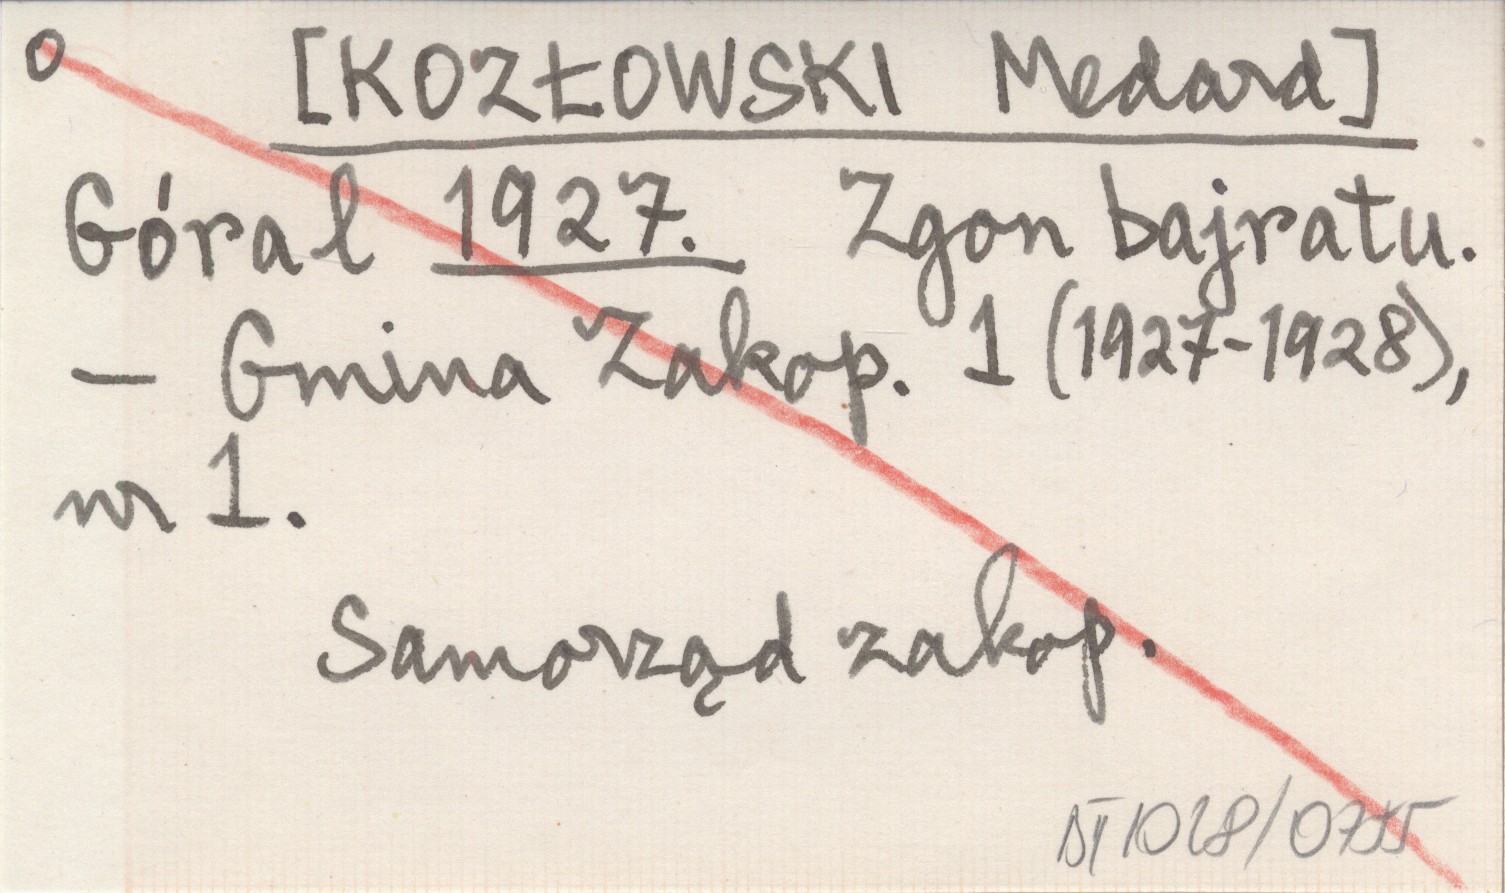 o [KOZŁOWSKI Medard]
Góral 1927. Zgon bajratu.
— Gmina Zakop. 1 (1927-1928),
nr 1.
Samorząd zakop.